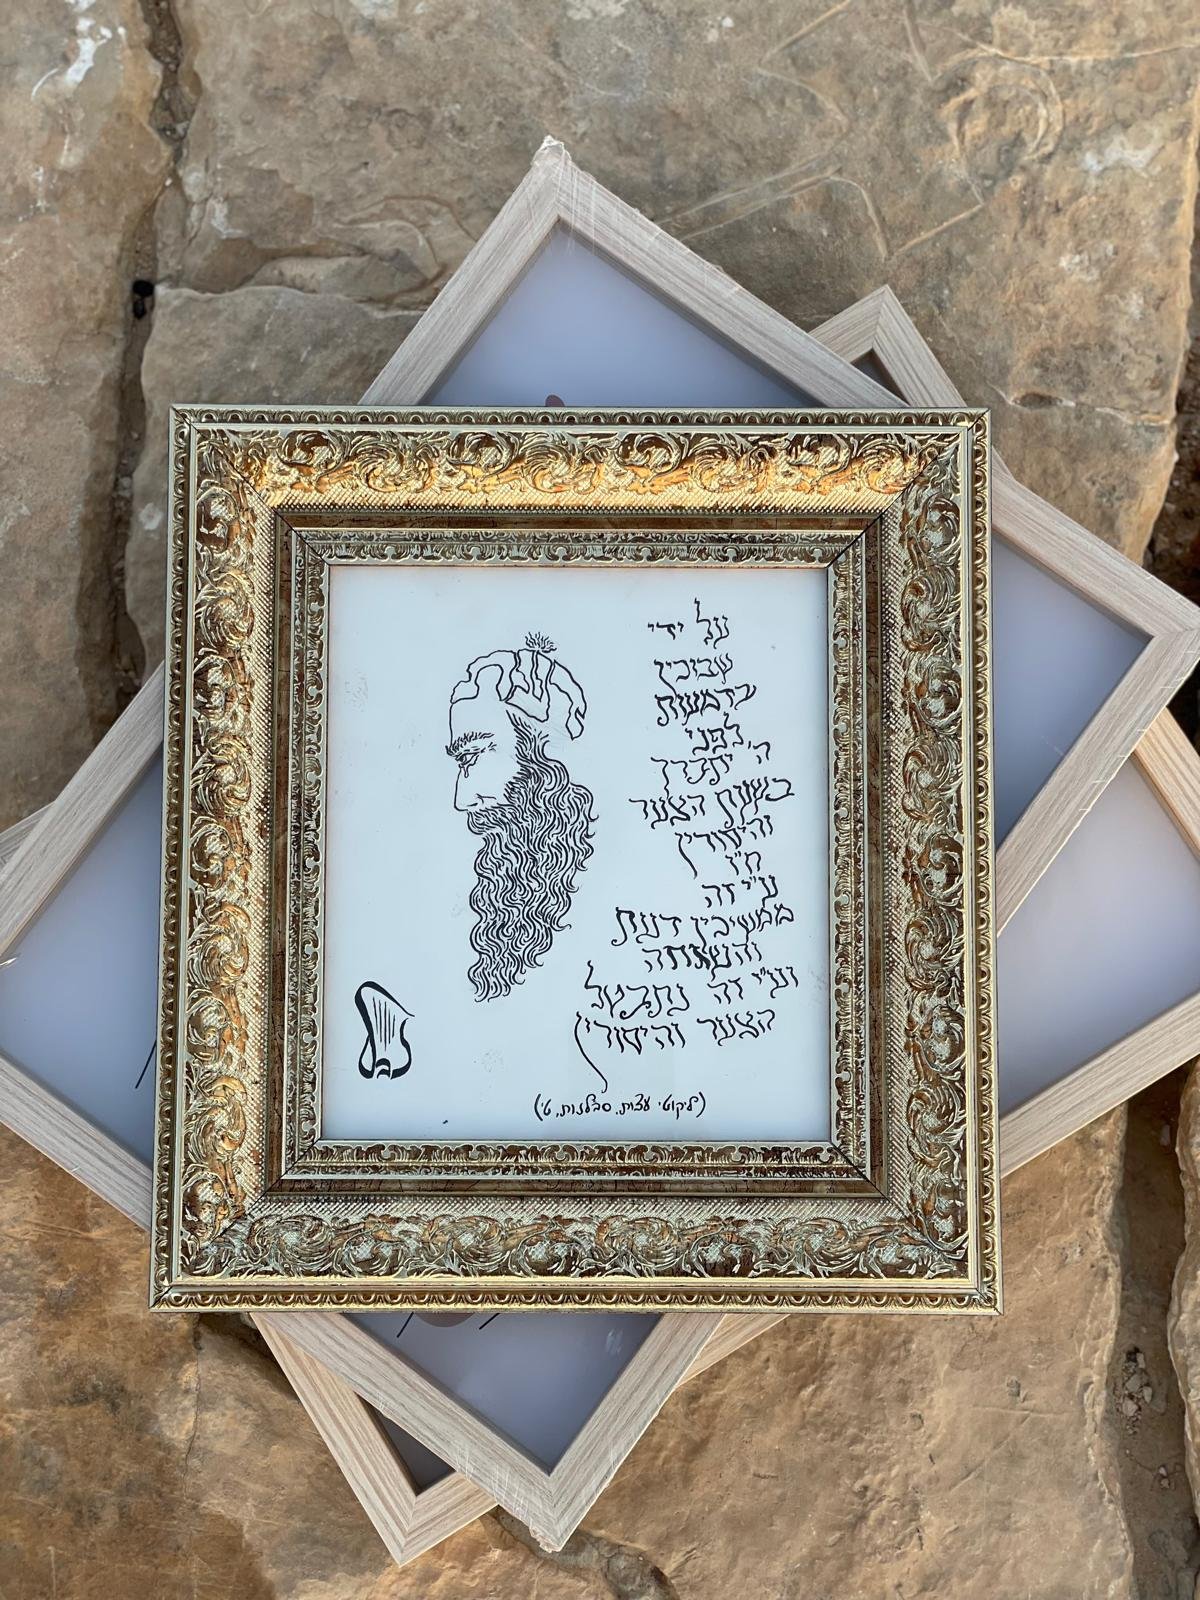 על ידי
שבוכין
בדמעות
לפני
ה' יתברך
בשעת הצער
והיסורין
ח"ו
ע"י זה
ממשיכין דעת
והשגחה
וע"י זה נתבטל
הצער והיסורין
(ליקוטי עצות, סבלנות, ט')